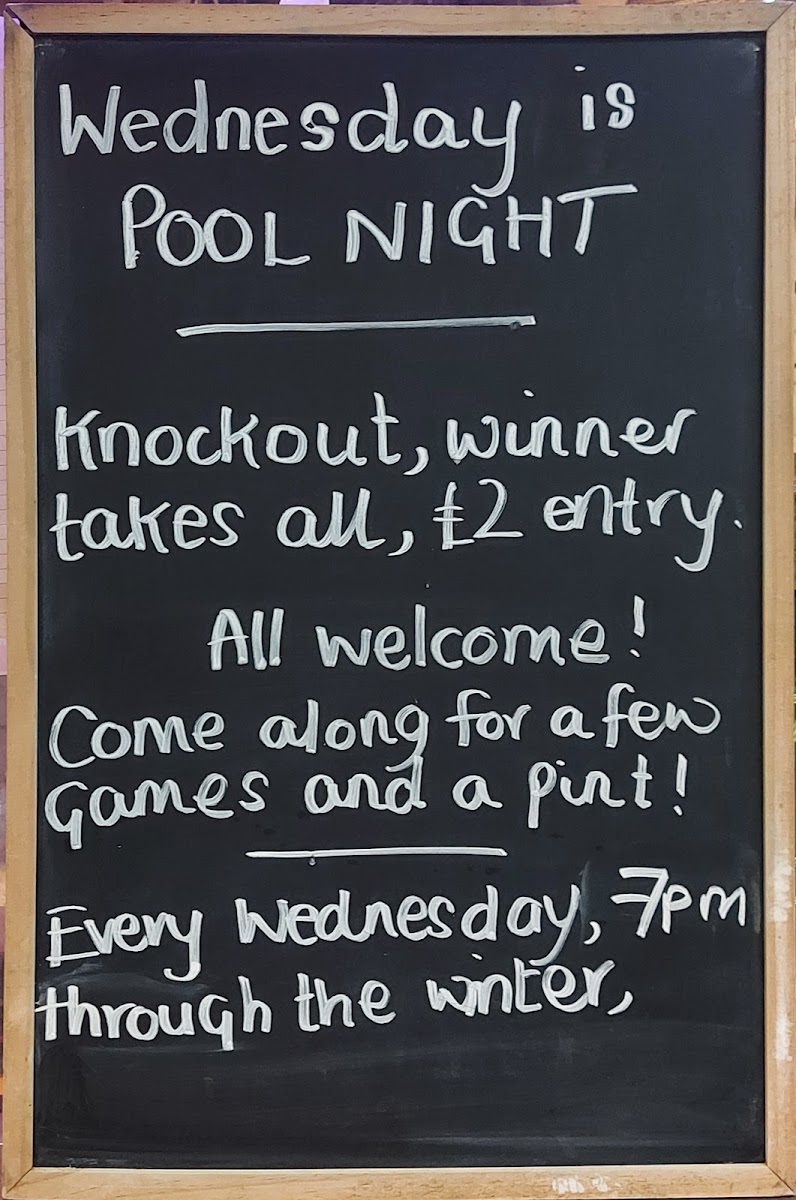 Wednesday is
POOL NIGHT
Knockout, winner
takes all, £2 entry.
All welcome!
Come along for a few
Games and a pint!
Every Wednesday, 7pm
through the winter,